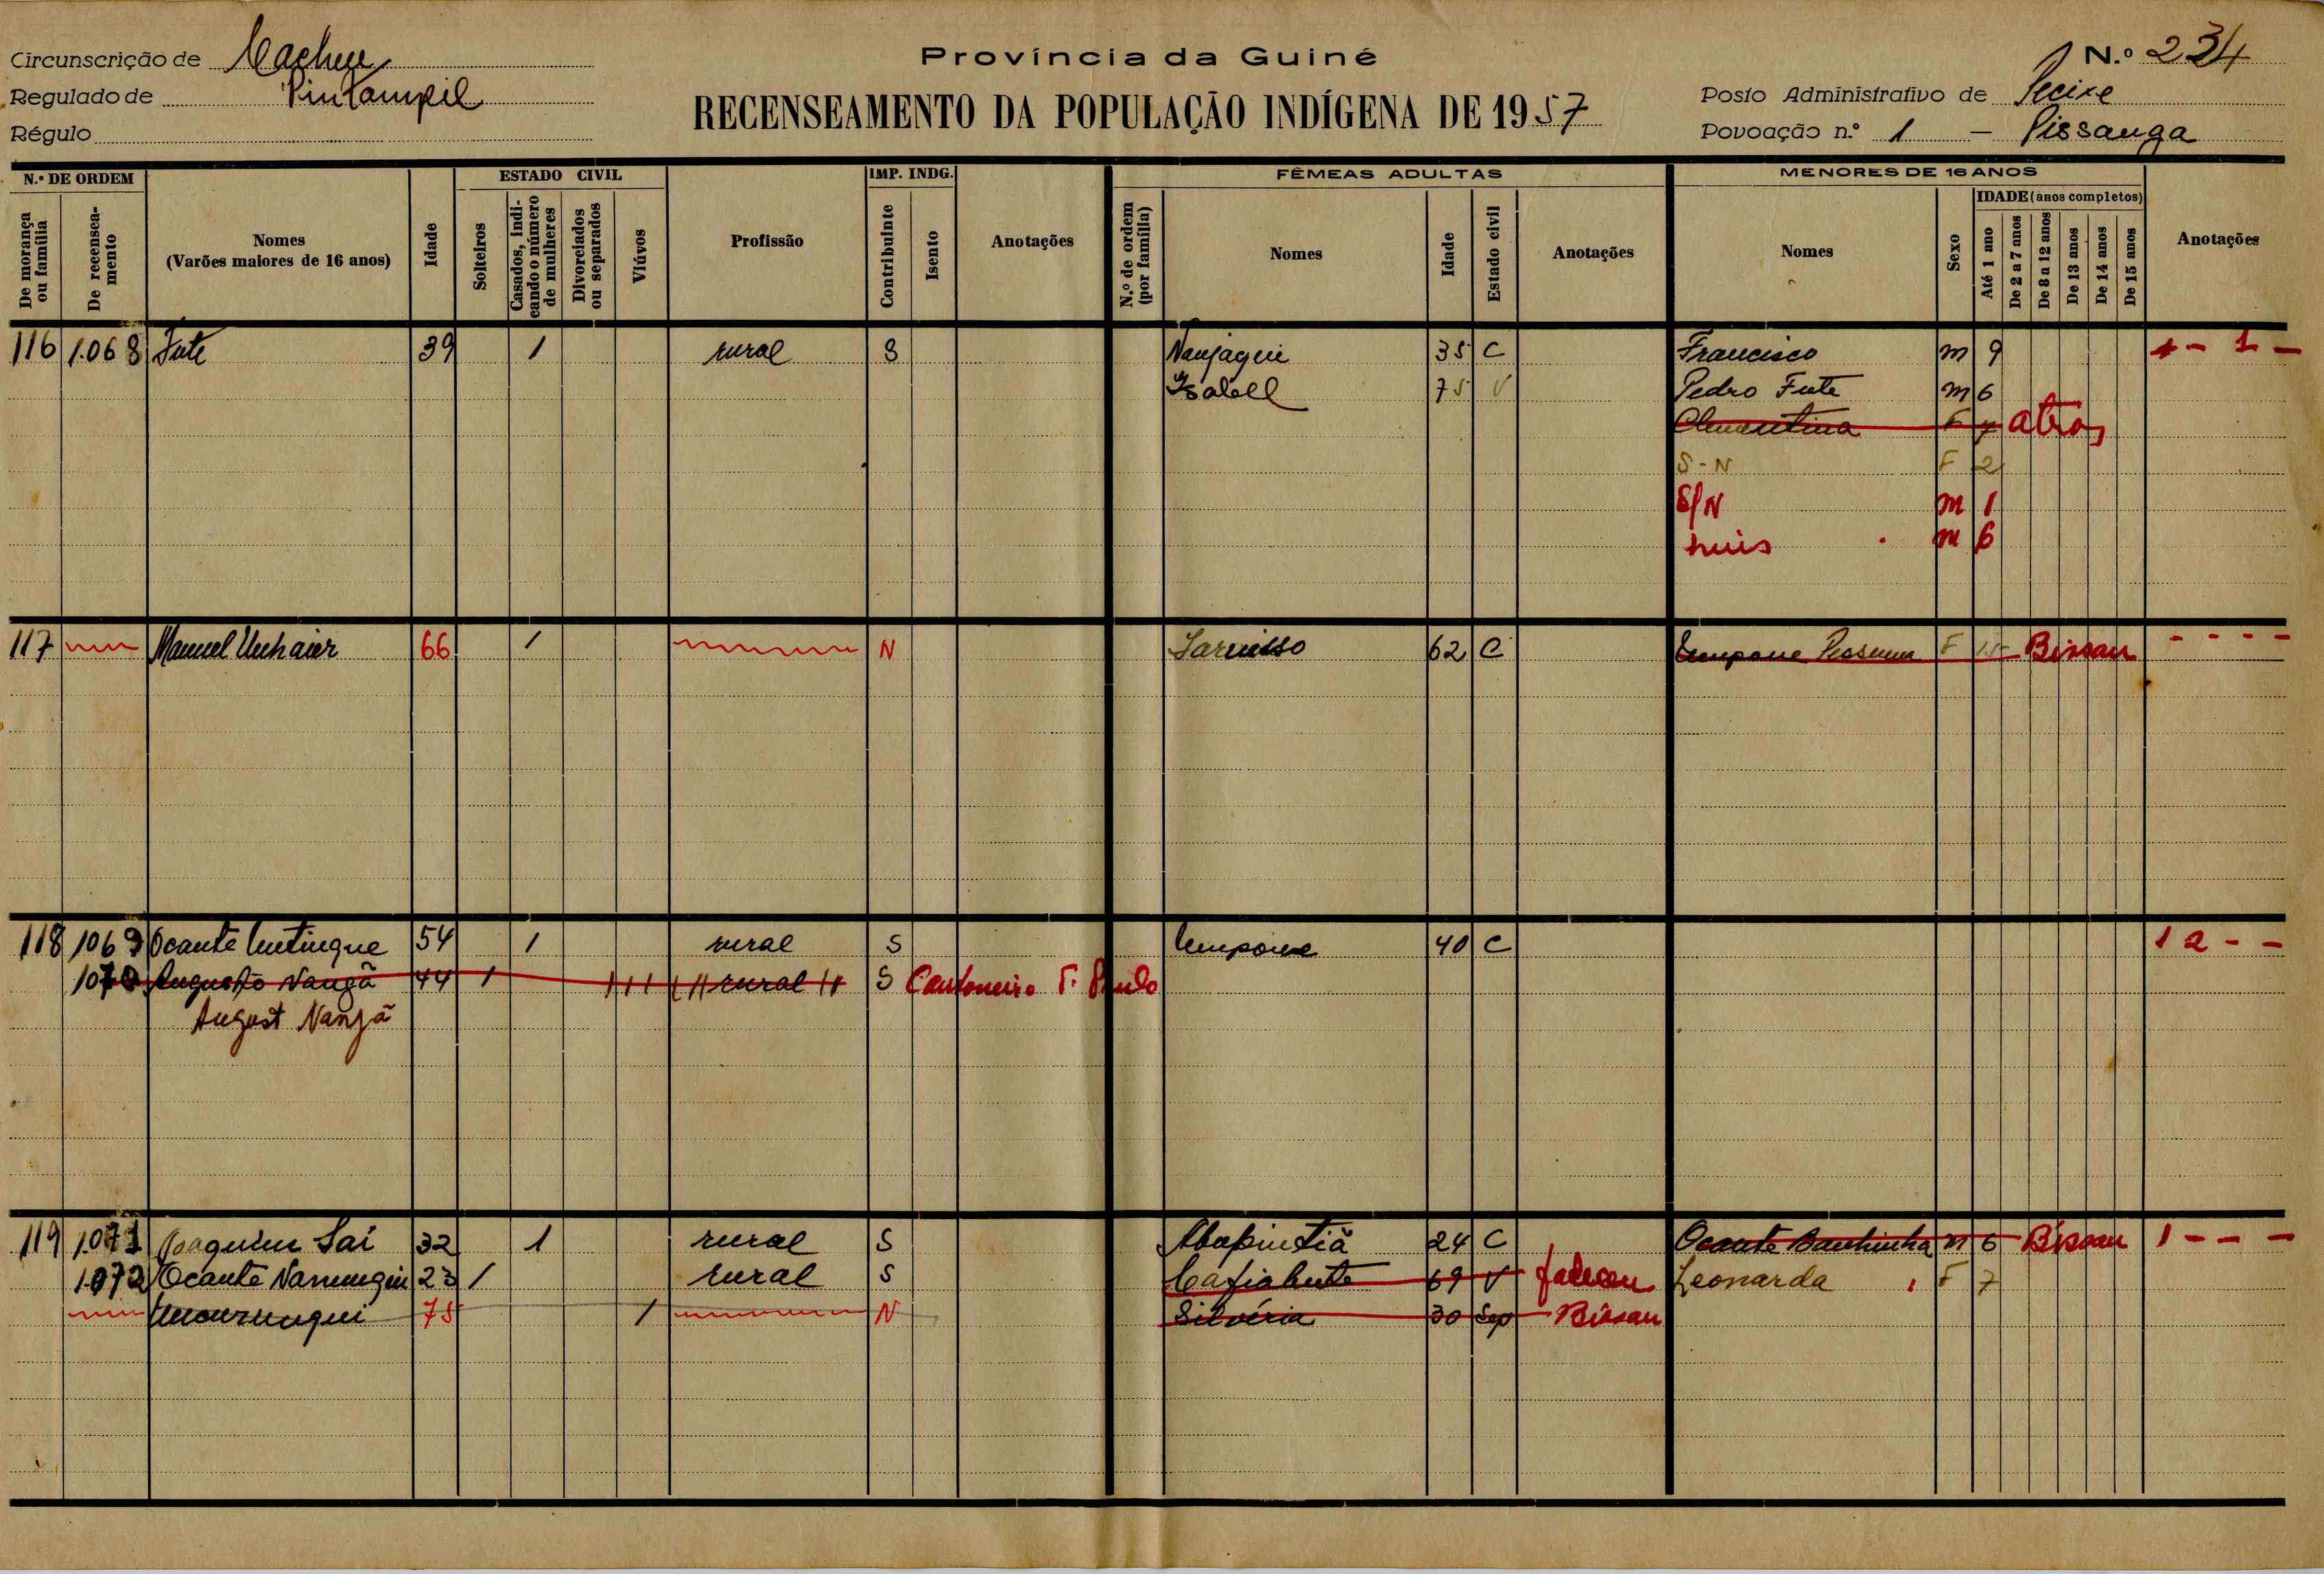 Circunscrição de Cacheu
Regulado de Pintampil
Régulo
Província da Guiné
RECENSEAMENTO DA POPULAÇÃO INDÍGENA DE 1957
N.º 234
Posto Administrativo de Pecixe
Povoação n.º 1 — Pissanga
N.º DE ORDEM
De morança ou família
De recenseamento
Nomes
(Varões maiores de 16 anos)
Idade
ESTADO CIVIL
Solteiros
Casados, indicando o número de mulheres
Divorciados ou separados
Viúvos
Profissão
IMP. INDG.
Contribuinte
Isento
Anotações
FÊMEAS ADULTAS
N.º de ordem (por família)
Nomes
Idade
Estado civil
Anotações
MENORES DE 16 ANOS
Nomes
Sexo
IDADE (anos completos)
Até 1 ano
De 2 a 7 anos
De 8 a 12 anos
De 13 anos
De 14 anos
De 15 anos
Anotações
116 1.068 Fute 39 1 rural S Naujaque 35 C Francisco m 9 1 - 1 -
Isabell 75 V Pedro Fute m 6
Clementina F 7 atras
S-N F 2
S/N m 1
Luis m 6
117 Manuel Unhaier 66 1 N 62 C F 15 Bissau - - - -
118 1069 Ocante 54 1 rural S Umpone 40 C 1 2 - -
1070 Augusto Naugã 44 1 rural S Cantoneiro F. Paulo
August Nanjã
119 1.071 Joaquim Sai 32 1 rural S Abupintiã 24 C Ocante Banhinha m 6 Bissau 1 - - -
1.072 Ocante 23 1 rural S 69 V faleceu Leonarda F 7
75 1 N Silvéria 30 Sep Bissau